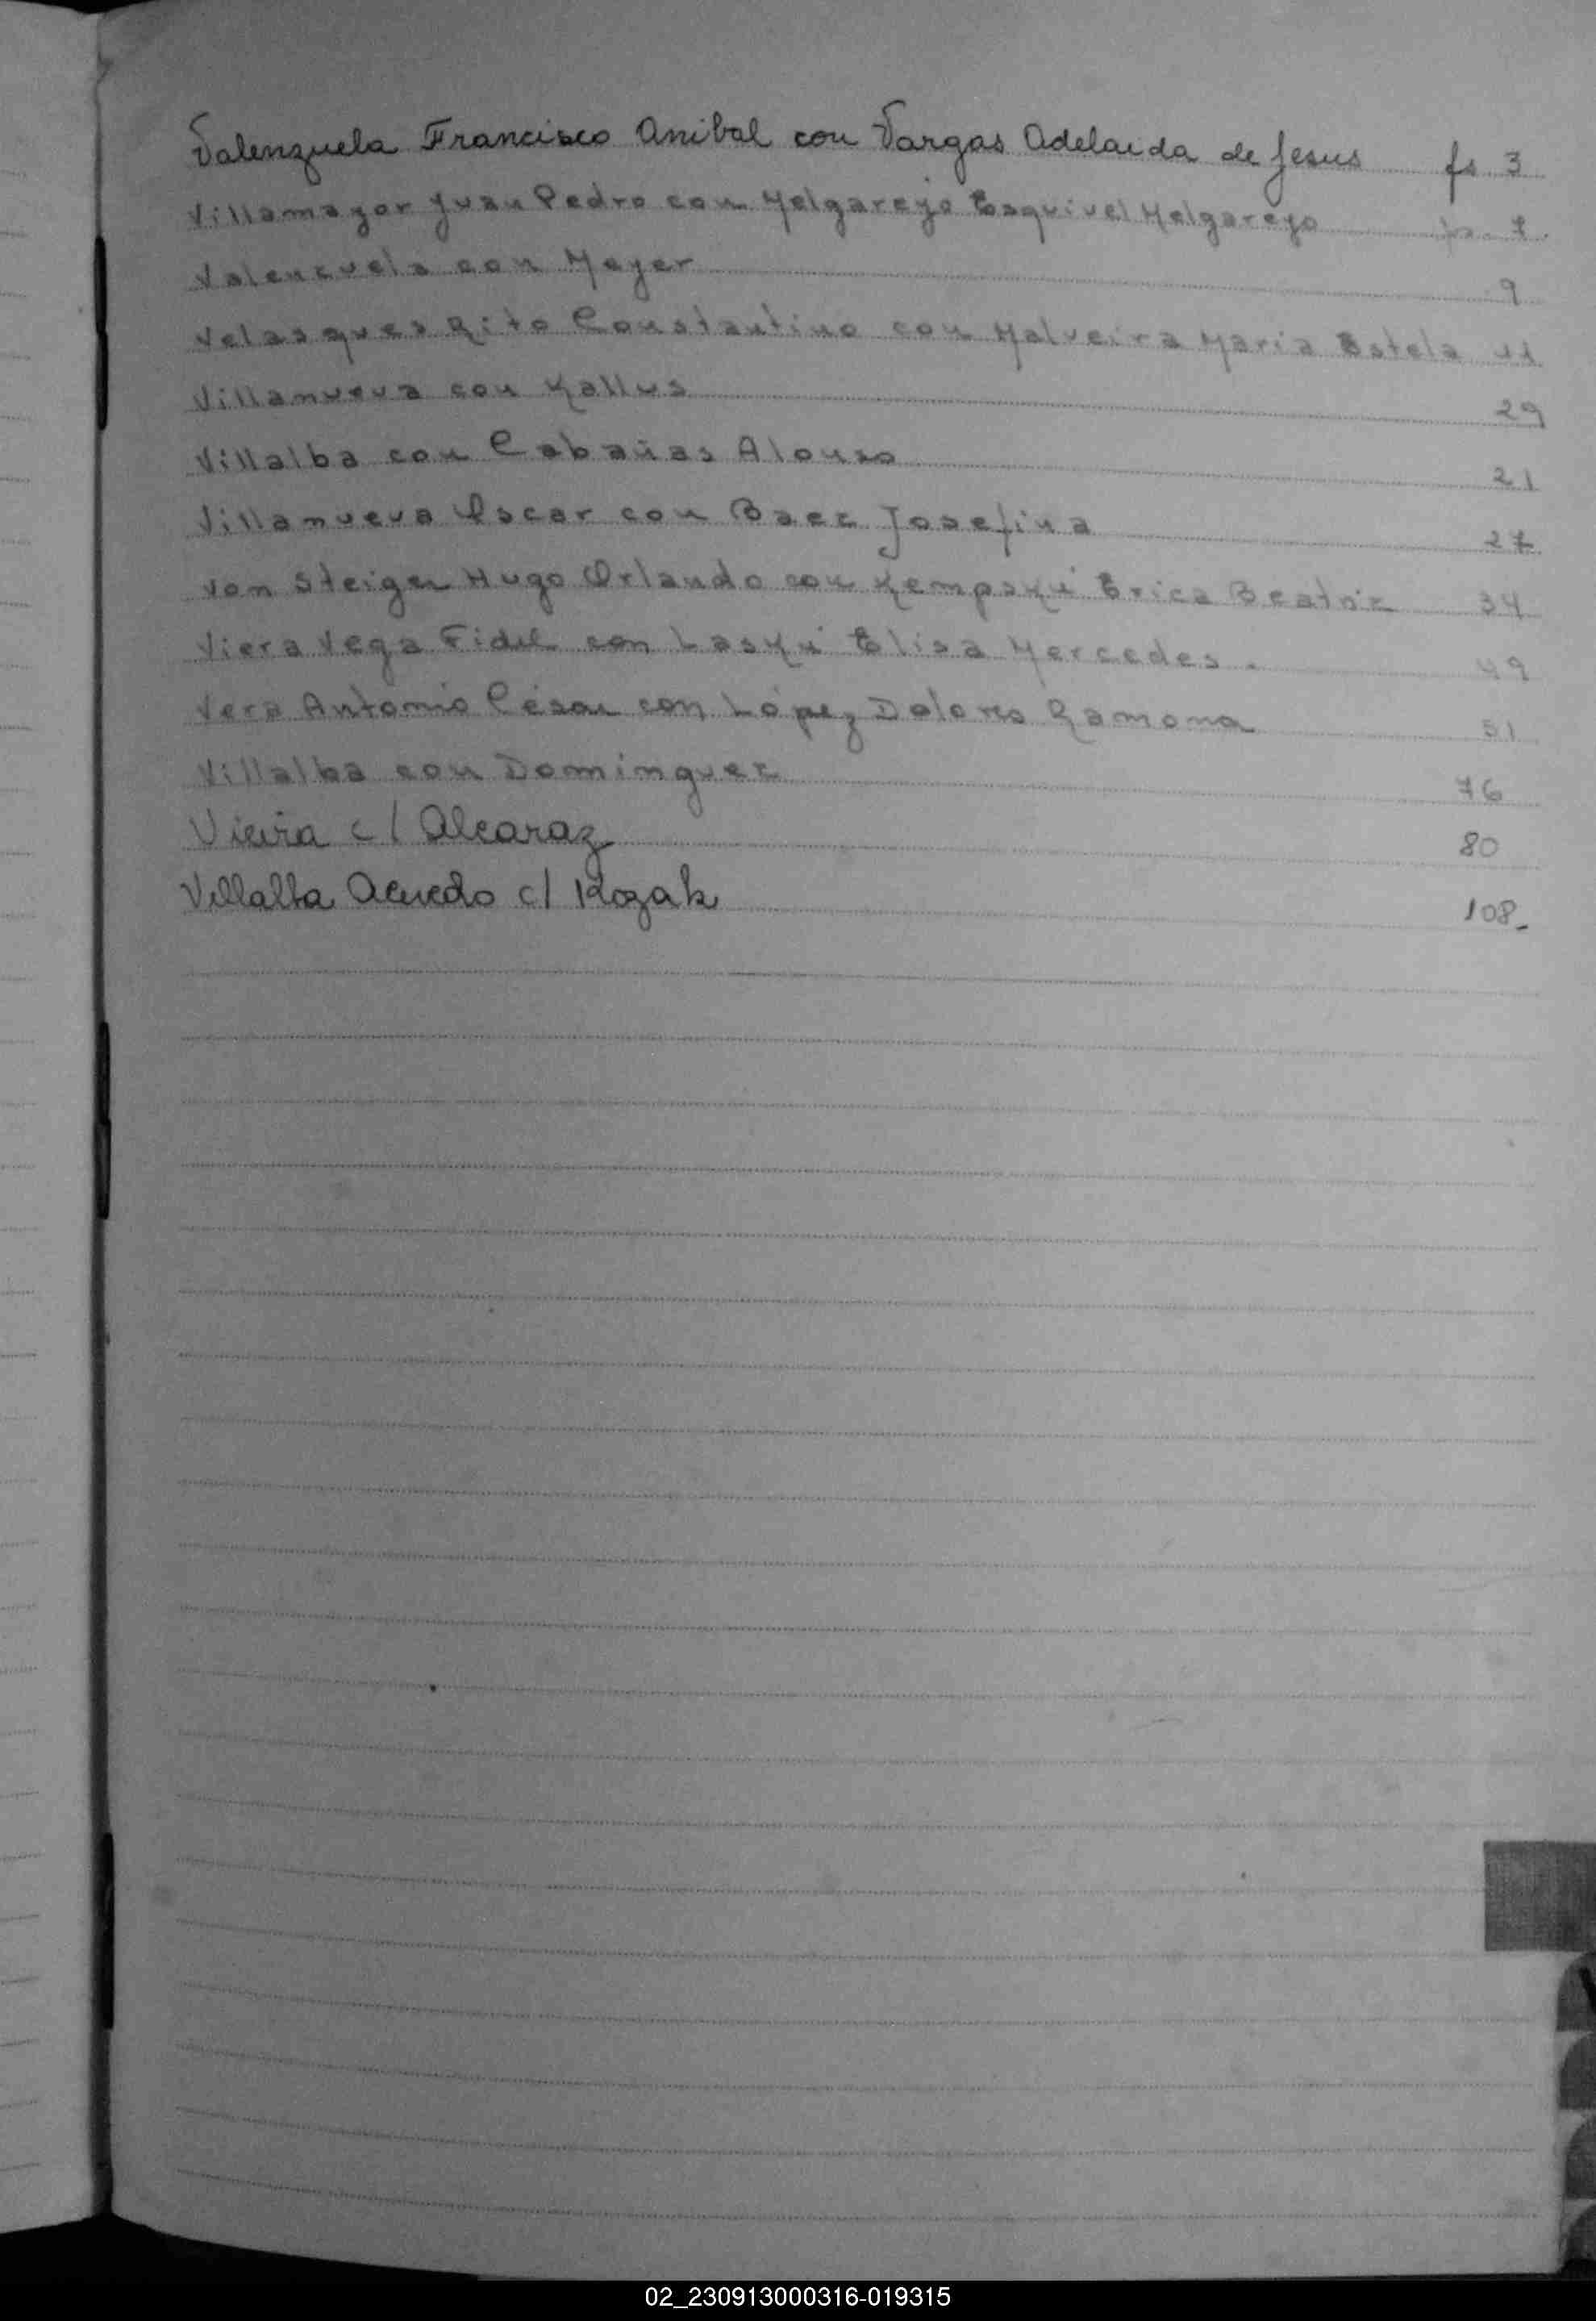 Valenzuela Francisco Anibal con Vargas Adelaida de Jesus fs 3
Villamayor Juan Pedro con Melgarejo Esquivel Melgarejo fs. 7.
Valenzuela con Meyer 9
Velasques Rito Constantino con Malveira Maria Estela 11
Villanueva con Kallus 29
Villalba con Cabañas Alonso 21
Villanueva Oscar con Baez Josefina 27
von Steiger Hugo Orlando con Kempski Erica Beatriz 34
Viera Vega Fidel con Laski Elisa Mercedes. 49
Vera Antonio César con López Dolores Ramona 51
Villalba con Dominguez 76
Vieira c/ Alcaraz 80
Villalba Acevedo c/ Kozak 108-
02_230913000316-019315